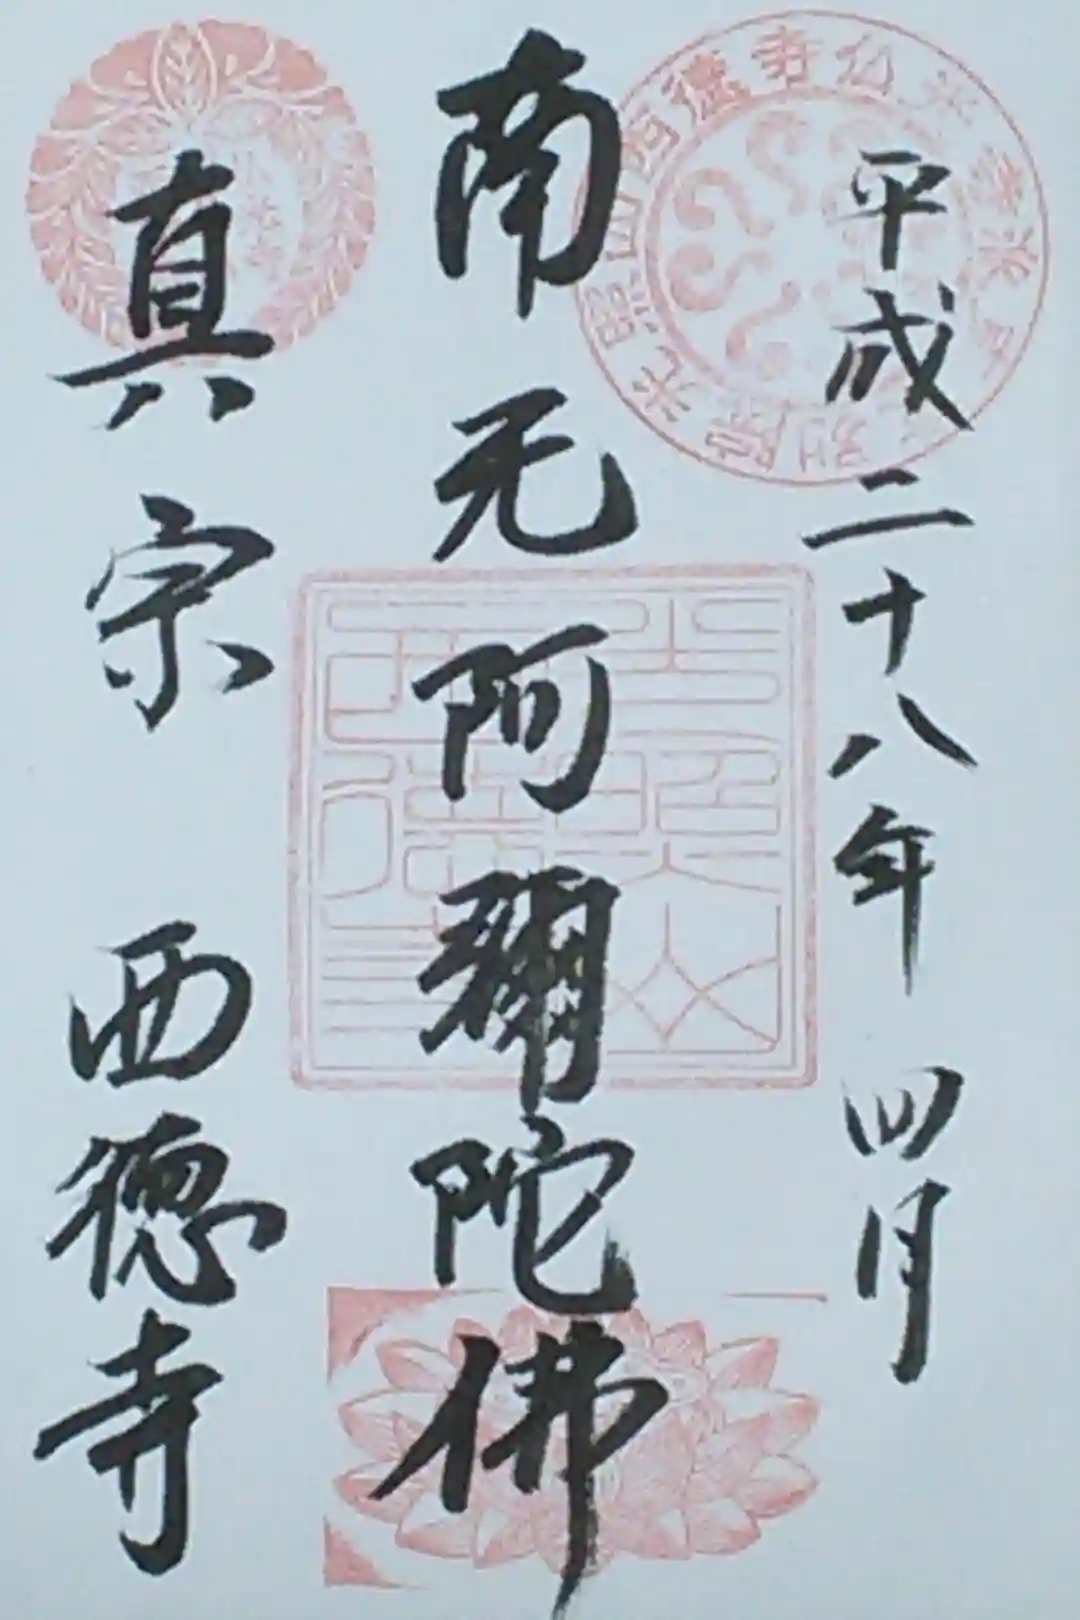 平成二十八年 四月
南无阿彌陀佛
真宗 西德寺
光照山西德寺